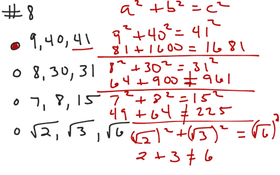 #8
a² + b² = c²
9, 40, 41
9² + 40² = 41²
81 + 1600 = 1681
8, 30, 31
8² + 30² = 31²
64 + 900 ≠ 961
7, 8, 15
7² + 8² = 15²
49 + 64 ≠ 225
√2, √3, √6
(√2)² + (√3)² = (√6)²
2 + 3 ≠ 6